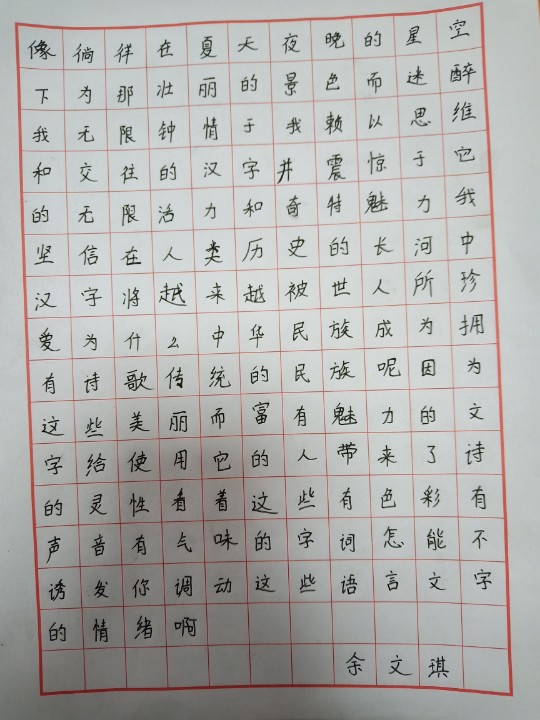 像徜徉在夏天夜晚的星空
下为那壮丽的景色而迷醉
我无限钟情于我赖以思维
和交往的汉字并震惊于它
的无限活力和奇特魅力我
坚信在人类历史的长河中
汉字将越来越被世人所珍
爱为什么中华民族成为拥
有诗歌传统的民族呢因为
这些美丽而富有魅力的文
字给使用它的人带来了诗
的灵性看着这些有色彩有
声音有气味的字词怎能不
诱发你调动这些语言文字
的情绪啊
余文琪